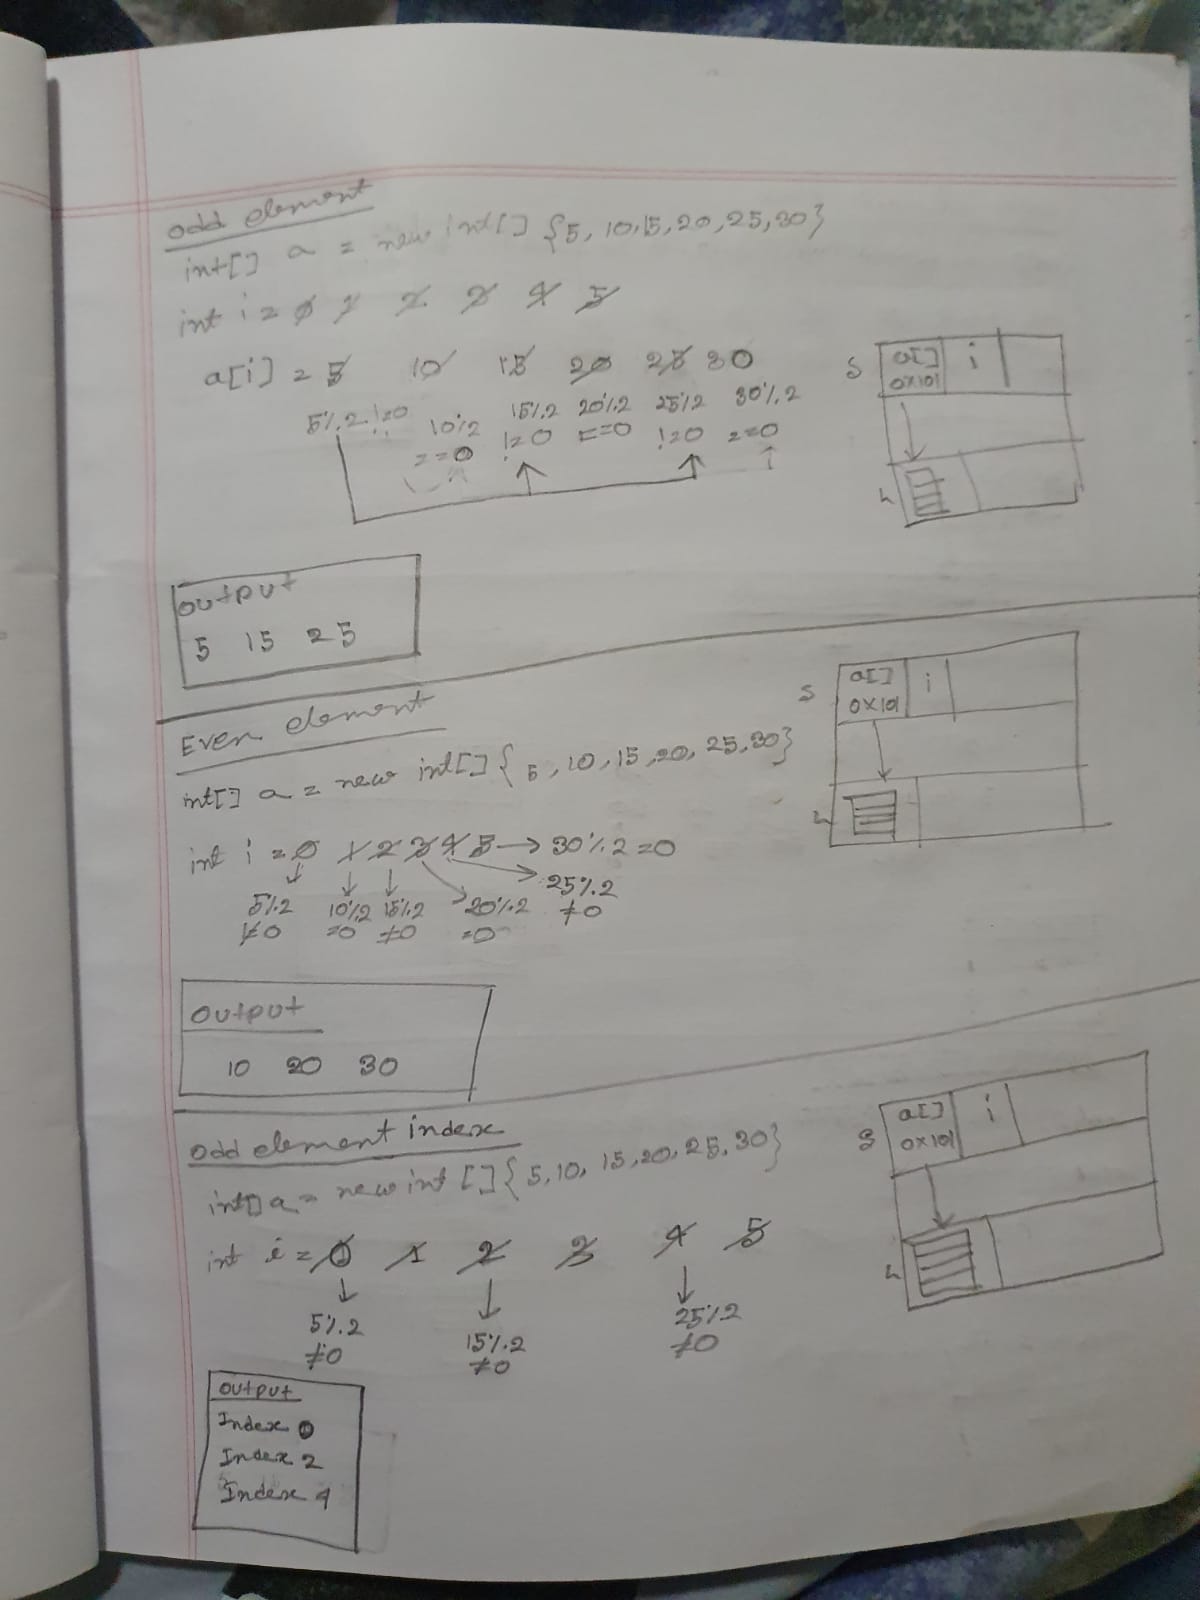 odd element
int[] a = new int[] {5, 10, 15, 20, 25, 30}
int i = 0 1 2 3 4 5
a[i] = 5 10 15 20 25 30
5%2 !=0 10%2 ==0 15%2 !=0 20%2 ==0 25%2 !=0 30%2 ==0
S a[] i
0x101
h
output
5 15 25
Even element
int[] a = new int[] { 5, 10, 15, 20, 25, 30}
int i = 0 1 2 3 4 5 → 30%2 =0
5%2 ≠0 10%2 =0 15%2 ≠0 20%2 =0 25%2 ≠0
S a[] i
0x101
h
output
10 20 30
odd element index
int[] a = new int []{ 5, 10, 15, 20, 25, 30}
int i = 0 1 2 3 4 5
5%2 ≠0 15%2 ≠0 25%2 ≠0
S a[] i
0x101
h
output
Index 0
Index 2
Index 4